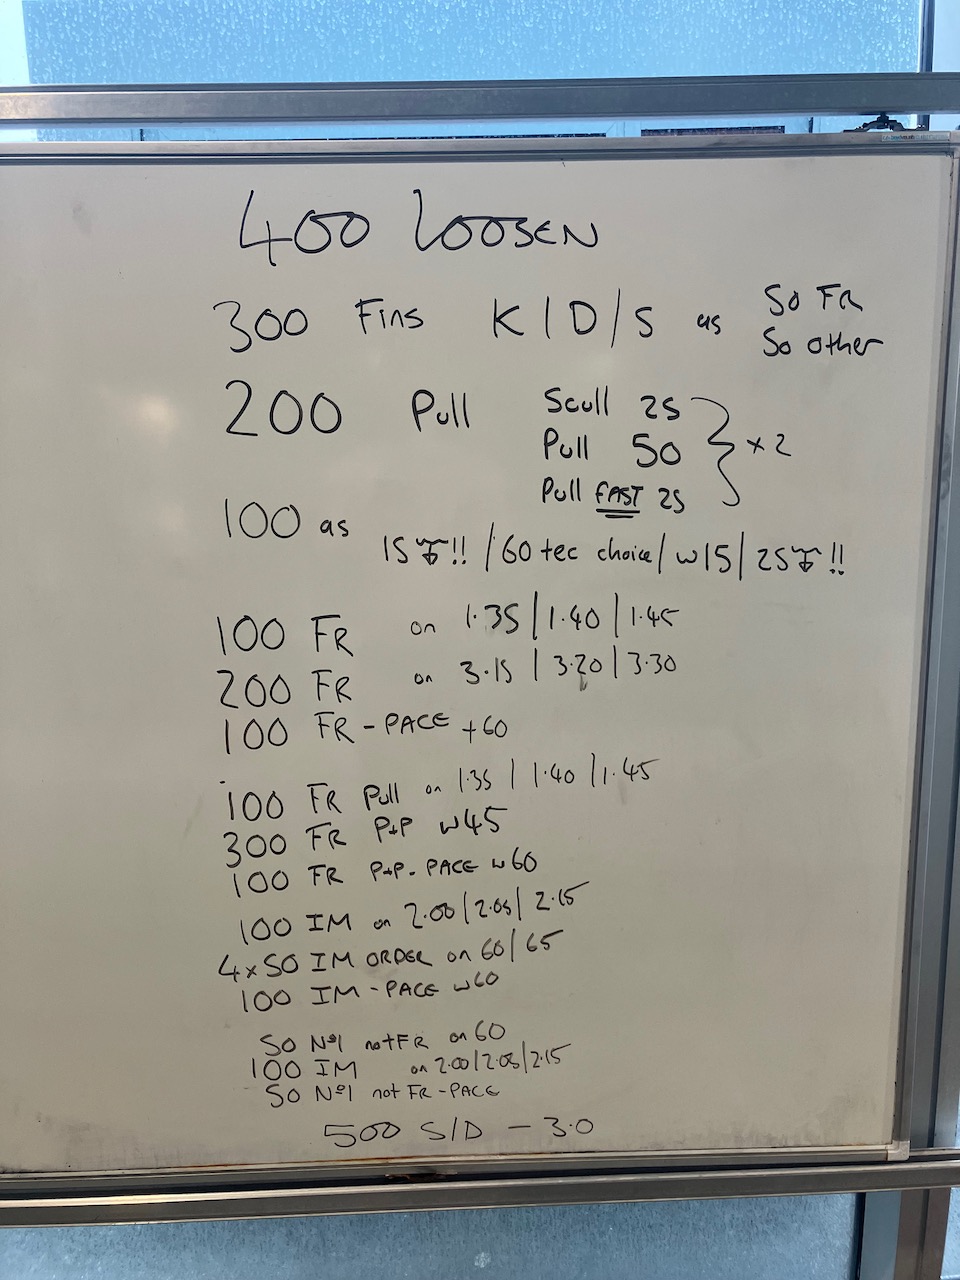 400 LOOSEN
300 Fins K/D/S as 50 FR
50 other
200 Pull Scull 25
Pull 50 } x 2
Pull FAST 25
100 as
15 !! / 60 tec choice / w15 / 25 !!
100 FR on 1.35 / 1.40 / 1.45
200 FR on 3.15 / 3.20 / 3.30
100 FR - PACE +60
100 FR Pull on 1.35 / 1.40 / 1.45
300 FR P+P w45
100 FR P+P - PACE w60
100 IM on 2.00 / 2.05 / 2.15
4x50 IM ORDER on 60/65
100 IM - PACE w60
50 Nº1 not FR on 60
100 IM on 2.00 / 2.05 / 2.15
50 Nº1 not FR - PACE
500 S/D - 3.0